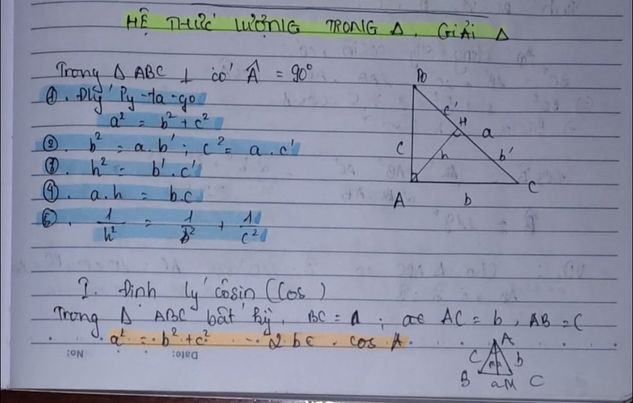 HỆ THỨC LƯỢNG TRONG Δ. GIẢI Δ
Trong Δ ABC ⊥ có Â = 90°
①. Đlý Py-ta-go
a² = b² + c²
②. b² = a.b' ; c² = a.c'
③. h² = b'.c'
④. a.h = b.c
⑤. 1/h² = 1/b² + 1/c²
B
c'
H
a
c
h
b'
A
b
C
I. Định lý côsin (cos)
Trong Δ ABC bất kỳ, BC = a ; AC = b, AB = c
a² = b² + c² - 2bc . cos A
A
c
b
B
a M C
Date:
No: